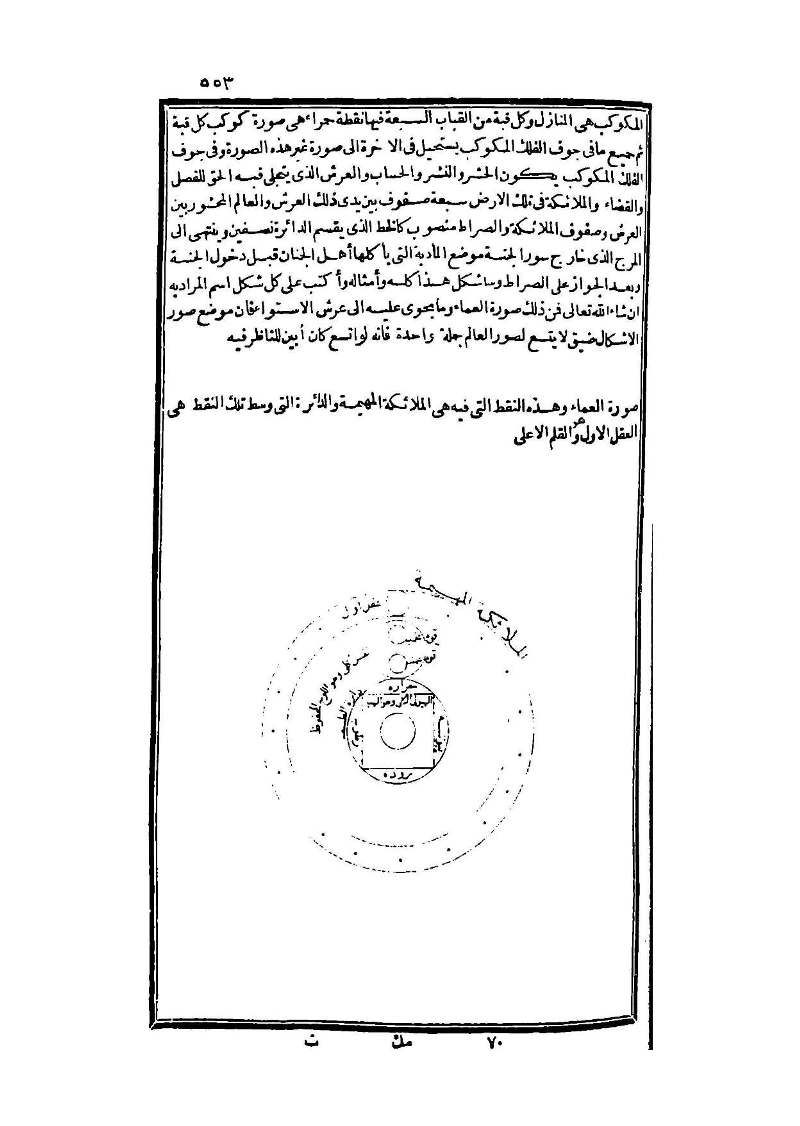 ٥٥٣
المكوكب هى المنازل وكل قبة من القباب السبعة فيها نقطة حمراء هى صورة كوكب كل قبة
ثم جميع ما فى جوف الفلك المكوكب يستحيل فى الآخرة الى صورة غير هذه الصورة وفى جوف
الفلك المكوكب يكون الحشر والنشر والحساب والعرش الذى يتجلى فيه الحق للفصل
والقضاء والملائكة فى تلك الارض سبعة صفوف بين يدى ذلك العرش والعالم المحشور بين
العرش وصفوف الملائكة والصراط منصوب كالخط الذى يقسم الدائرة نصفين وينتهى الى
المرج الذى خارج سور الجنة موضع المأدبة التى يأكلها أهل الجنان قبل دخول الجنة
وبعد الجواز على الصراط وسأشكل هذا كله وأمثاله وأكتب على كل شكل اسم المراد به
ان شاء الله تعالى فن ذلك صورة العماء وما يحوى عليه الى عرش الاستواء فان موضع صور
الاشكال ضيق لا يتسع لصور العالم جملة واحدة فانه لو اتسع كان أبين للناظر فيه
صورة العماء وهذه النقط التى فيه هى الملائكة المهيمة والدائرة التى وسط تلك النقط هى
العقل الاول وهو القلم الاعلى
الملائكة المهيمة
قوة
قوة
وهو اللوح المحفوظ
حرارة
يبوسة
٧٠
مك
ت